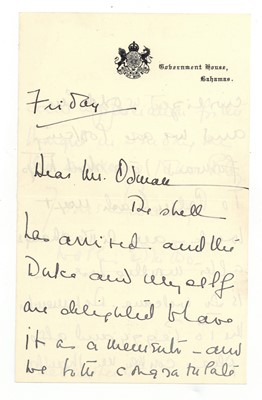 Government House,
Bahamas.
Friday
Dear Mr. Osman
The shell
has arrived - and the
Duke and myself
are delighted to have
it as a memento - and
we both congratulate